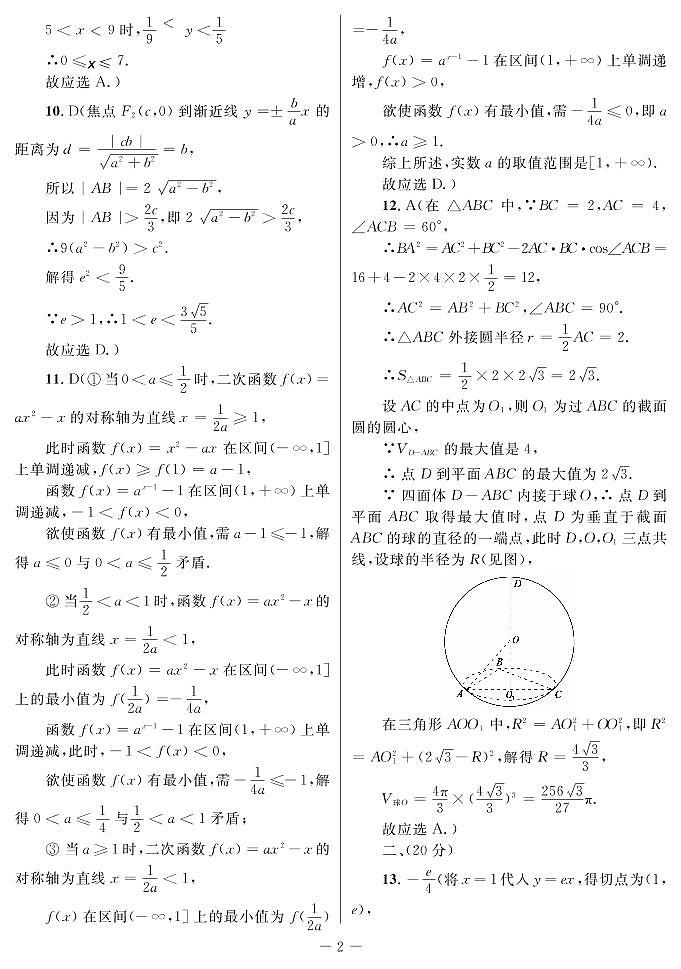 5 < x < 9 时, 1/9 < y < 1/5
∴0 ⩽x⩽ 7.
故应选 A.)
10. D(焦点 F₂(c,0) 到渐近线 y =± b/a x 的
距离为 d = |cb|/√(a²+b²) = b,
所以 | AB |= 2 √(a²−b²),
因为 | AB |> 2c/3,即 2 √(a²−b²) > 2c/3,
∴9(a²−b²) > c².
解得 e² < 9/5.
∵e > 1,∴1 < e < 3√5/5.
故应选 D.)
11. D(① 当0 < a ⩽ 1/2 时,二次函数 f(x) =
ax²−x 的对称轴为直线 x = 1/2a ⩾ 1,
此时函数 f(x) = x²−ax 在区间(−∞,1]
上单调递减,f(x) ⩾ f(1) = a−1,
函数 f(x) = aˣ⁻¹−1 在区间(1,+∞) 上单
调递减,−1 < f(x) < 0,
欲使函数 f(x) 有最小值,需 a−1 ⩽−1,解
得 a ⩽ 0 与 0 < a ⩽ 1/2 矛盾.
② 当 1/2 < a < 1 时,函数 f(x) = ax²−x 的
对称轴为直线 x = 1/2a < 1,
此时函数 f(x) = ax²−x 在区间(−∞,1]
上的最小值为 f(1/2a) =− 1/4a,
函数 f(x) = aˣ⁻¹−1 在区间(1,+∞) 上单
调递减,此时,−1 < f(x) < 0,
欲使函数 f(x) 有最小值,需 − 1/4a ⩽−1,解
得 0 < a ⩽ 1/4 与 1/2 < a < 1 矛盾;
③ 当 a ⩾ 1 时,二次函数 f(x) = ax²−x 的
对称轴为直线 x = 1/2a < 1,
f(x) 在区间(−∞,1] 上的最小值为 f(1/2a)
=− 1/4a,
f(x) = aˣ⁻¹−1 在区间(1,+∞) 上单调递
增,f(x) > 0,
欲使函数 f(x) 有最小值,需 − 1/4a ⩽ 0,即 a
> 0,∴a ⩾ 1.
综上所述,实数 a 的取值范围是[1,+∞).
故应选 D.)
12. A(在 △ABC 中,∵BC = 2,AC = 4,
∠ACB = 60°,
∴BA² = AC²+BC²−2AC·BC·cos∠ACB =
16+4−2×4×2× 1/2 = 12,
∴AC² = AB²+BC²,∠ABC = 90°.
∴△ABC 外接圆半径 r = 1/2 AC = 2.
∴S△ABC = 1/2 ×2×2√3 = 2√3.
设 AC 的中点为 O₁,则 O₁ 为过 ABC 的截面
圆的圆心,
∵V D−ABC 的最大值是 4,
∴ 点 D 到平面 ABC 的最大值为 2√3.
∵ 四面体 D−ABC 内接于球 O,∴ 点 D 到
平面 ABC 取得最大值时,点 D 为垂直于截面
ABC 的球的直径的一端点,此时 D,O,O₁ 三点共
线,设球的半径为 R(见图),
D
O
B
A O₁ C
在三角形 AOO₁ 中,R² = AO₁²+OO₁²,即 R²
= AO₁²+(2√3−R)²,解得 R = 4√3/3,
V球O = 4π/3 ×(4√3/3)³ = 256√3/27 π.
故应选 A.)
二、(20 分)
13. − e/4 (将 x = 1 代入 y = ex,得切点为(1,
e),
— 2 —